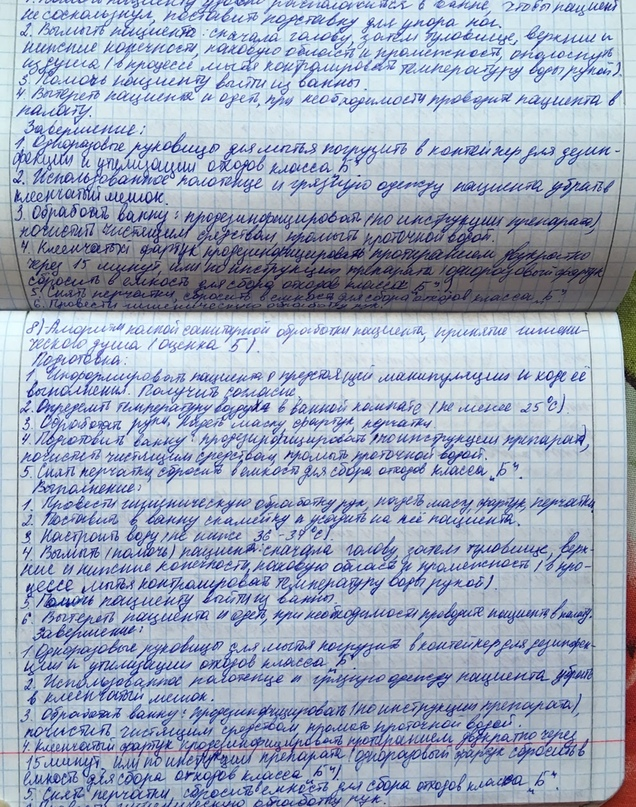 не соскользнул, поставить подставку для упора ног.
2. Вымыть пациента: сначала голову, затем туловище, верхние и
нижние конечности, паховую область и промежность, ополоснуть
из душа (в процессе мытья контролировать температуру воды рукой).
3. Помочь пациенту выйти из ванны.
4. Вытереть пациента и одеть, при необходимости проводить пациента в
палату.
Завершение:
1. Одноразовые руковицы для мытья погрузить в контейнер для дезин-
фекции и утилизации отходов класса „Б“.
2. Использованное полотенце и грязную одежду пациента убрать в
клеенчатый мешок.
3. Обработать ванну: продезинфицировать (по инструкции препарата)
почистить чистящим средством, промыть проточной водой.
4. Клеенчатый фартук продезинфицировать протиранием двукратно
через 15 минут, или по инструкции препарата (одноразовый фартук
сбросить в емкость для сбора отходов класса „Б“)
5. Снять перчатки, сбросить в емкость для сбора отходов класса „Б“
6. Провести гигиеническую обработку рук.
8) Алгоритм полной санитарной обработки пациента, принятие гигиени-
ческого душа (оценка 5).
Подготовка:
1. Информировать пациента о предстоящей манипуляции и ходе её
выполнения. Получить согласие
2. Определить температуру воздуха в ванной комнате (не менее 25°С)
3. Обработать руки. Надеть маску, фартук, перчатки
4. Подготовить ванну: продезинфицировать (по инструкции препарата),
почистить чистящим средством, промыть проточной водой.
5. Снять перчатки, сбросить в емкость для сбора отходов класса „Б“.
Выполнение:
1. Провести гигиеническую обработку рук, надеть маску, фартук, перчатки
2. Поставить в ванну скамейку и усадить на неё пациента.
3 Настроить воду (не ниже 36-37°С)
4. Вымыть (помочь) пациента: сначала голову, затем туловище, верх-
ние и нижние конечности, паховую область и промежность (в про-
цессе мытья контролировать температуру воды рукой).
5. Помочь пациенту выйти из ванны
6. Вытереть пациента и одеть, при необходимости проводить пациента в палату.
Завершение:
1 Одноразовые руковицы для мытья погрузить в контейнер для дезинфек-
ции и утилизации отходов класса „Б“
2. Использованное полотенце и грязную одежду пациента убрать
в клеенчатый мешок.
3. Обработать ванну: продезинфицировать (по инструкции препарата),
почистить чистящим средством промыть проточной водой.
4. Клеенчатый фартук продезинфицировать протиранием двукратно через
15 минут, или по инструкции препарата (одноразовый фартук сбросить в
емкость для сбора отходов класса „Б“)
5. Снять перчатки, сбросить в емкость для сбора отходов класса „Б“.